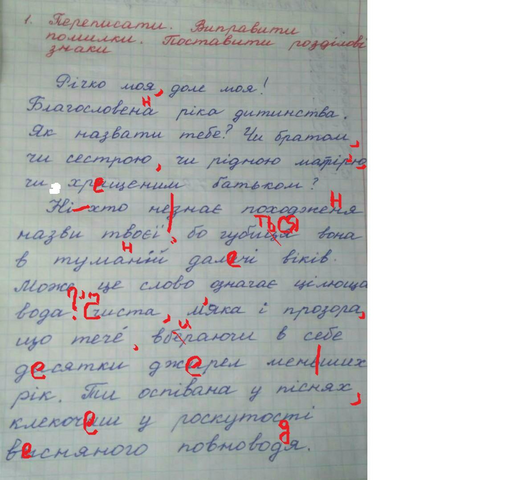 1. Переписати. Виправити
помилки. Поставити розділові
знаки
Річко моя, доле моя!
Благословена ріка дитинства.
Як назвати тебе? Чи братом,
чи сестрою, чи рідною матірю,
чи хрещеним батьком?
Ні-хто не знає походженя
назви твоєї, бо губиця вона
в туманій далечі віків.
Може, це слово означає цілюща
вода? Чиста, м'яка і прозора,
що тече, вбираючи в себе
десятки джерел менших
рік. Ти оспівана у піснях,
клекочеш у роскутості
весняного повноводя.